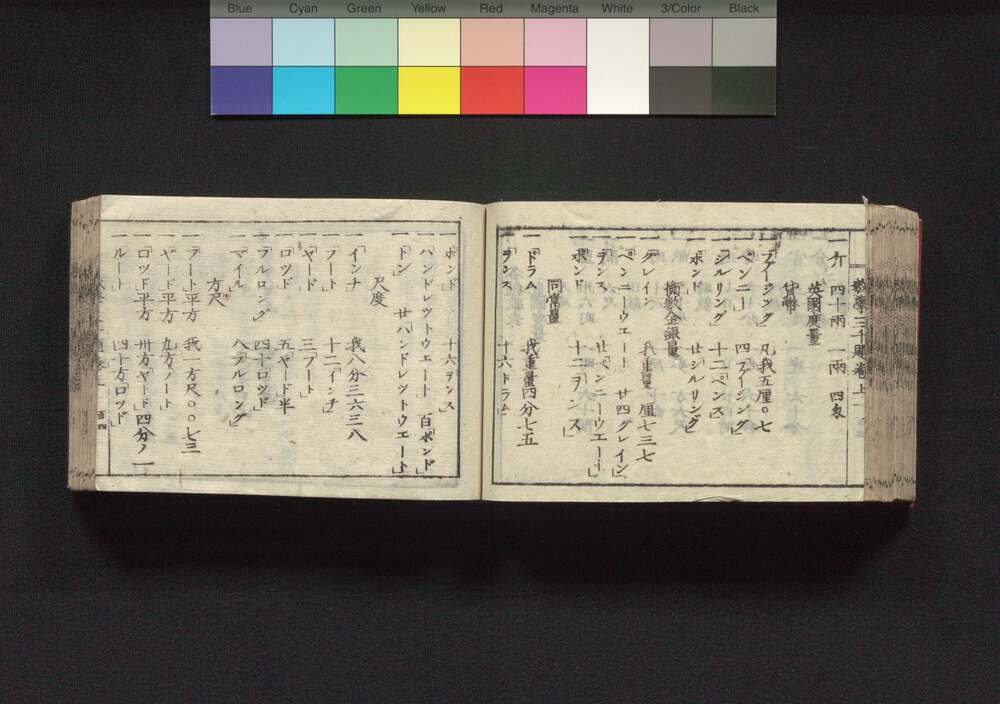 Blue Cyan Green Yellow Red Magenta White 3/Color Black
一斤 四十兩 一兩 四匁
英國度量
貨幣
一「フアージング」 凡我五厘〇七
一「ペンニー」 四「フアイシング」
一「シルリング」 十二「ペンス」
一「ポンド」 廿「シルリング」
衡数金銀量
一「グレイン」 我重量一厘七三七
一「ペンニーウエート 廿四グレイン」
一「ヲンス」 廿「ペンニーウエー」
一「ポンド 十二ヲンス」
同常量
一「ドラム 我重量四分七五
一「ヲンス 十六ドラム」
一「ポンド」 十六ヲンス」
一ハンドレツトウエート 百「ポンド」
一「トン 廿ハンドレツトウエート」
尺度
一「インチ 我八分三六三八
一「フート」 十二「インチ」
一「ヤード」 三フート」
一「ロツド 五ヤード半
一「フルロング」 四十ロツド」
一「マイル」 八フルロング」
方尺
一「フート平方 我一方尺〇〇七三
一「ヤード平方 九方フート」
一「ロツド平方 卅方ヤード」四分ノ一
一「ルート 四十方ロツド」